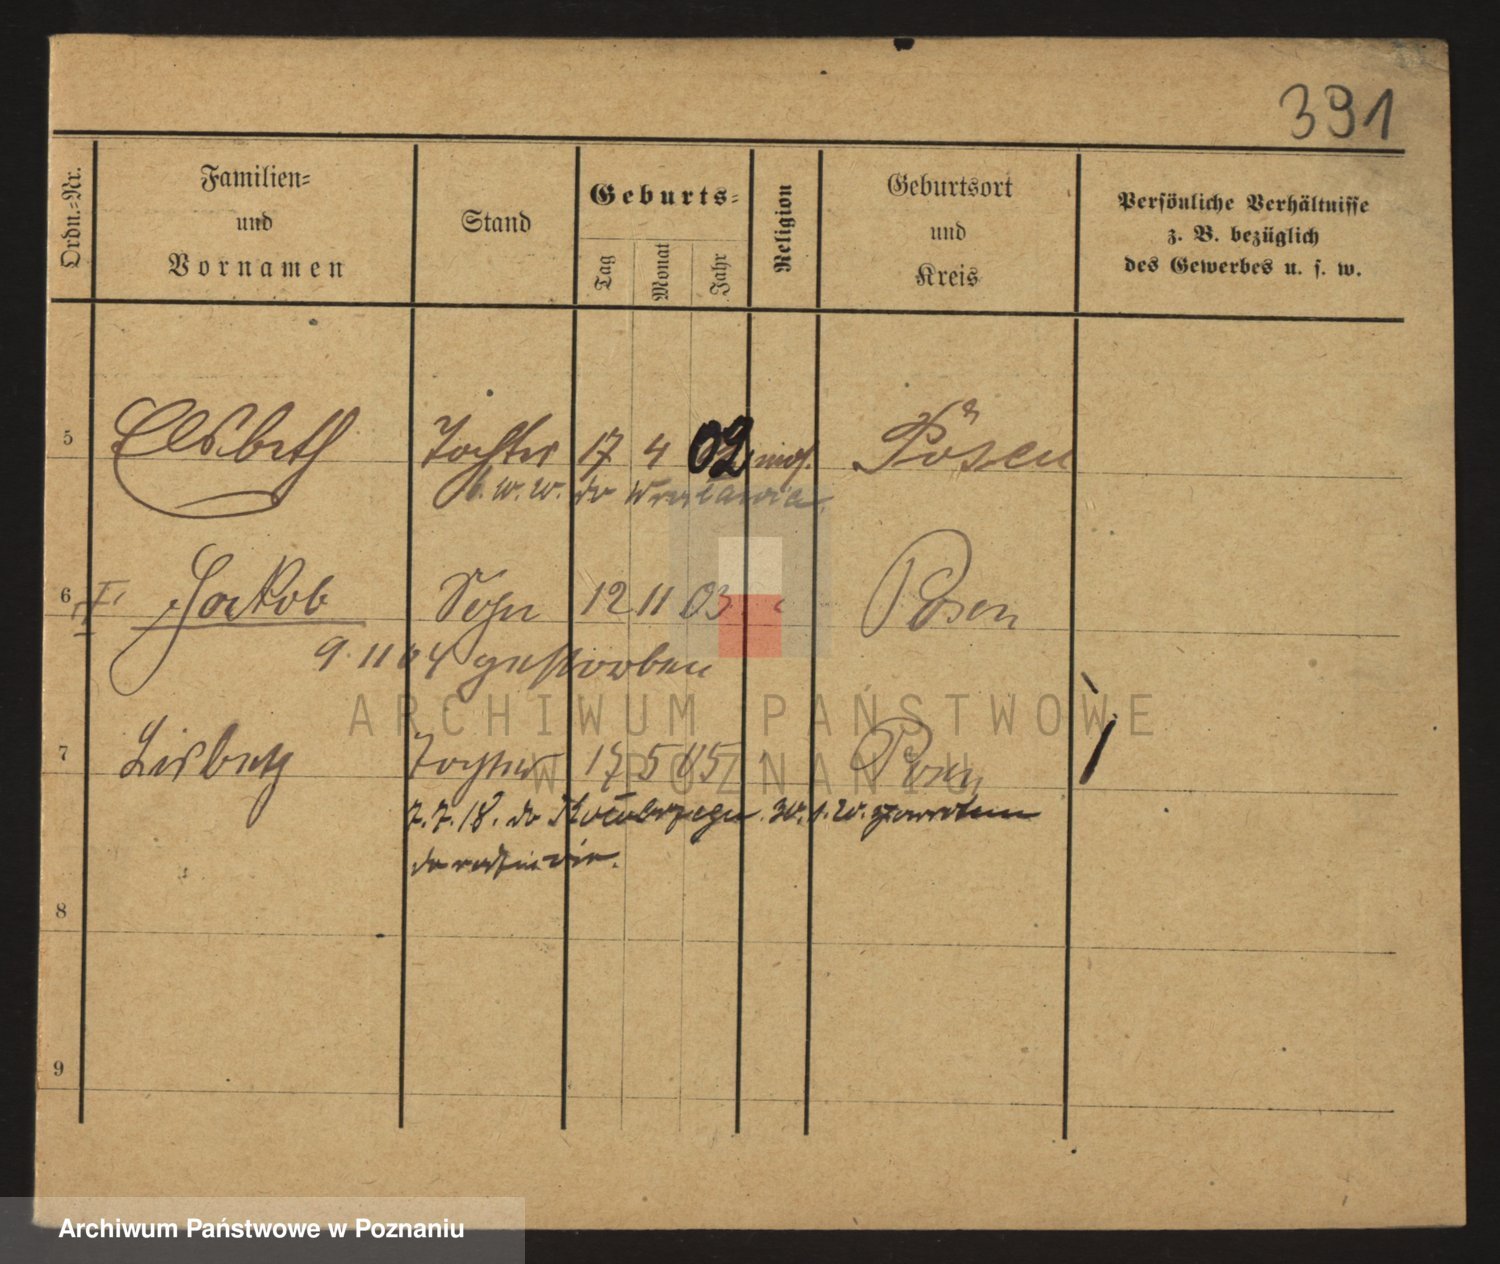 391
Ordn.=Nr.
Familien=
und
Vornamen
Stand
Geburts=
Tag
Monat
Jahr
Religion
Geburtsort
und
Kreis
Persönliche Verhältnisse
z. B. bezüglich
des Gewerbes u. s. w.
5 Elsbeth Tochter 17 4 02 mos. Posen
w. w. do Wrocławia
6 Jackob Sohn 12 11 03 " Posen
9 11 04 gestorben
ARCHIWUM PAŃSTWOWE
7 Lisbeth Tochter 17 5 05 Posen
W POZNANIU
7. 7. 18. do
8
9
Archiwum Państwowe w Poznaniu